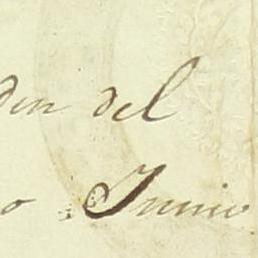 den del
o Junio